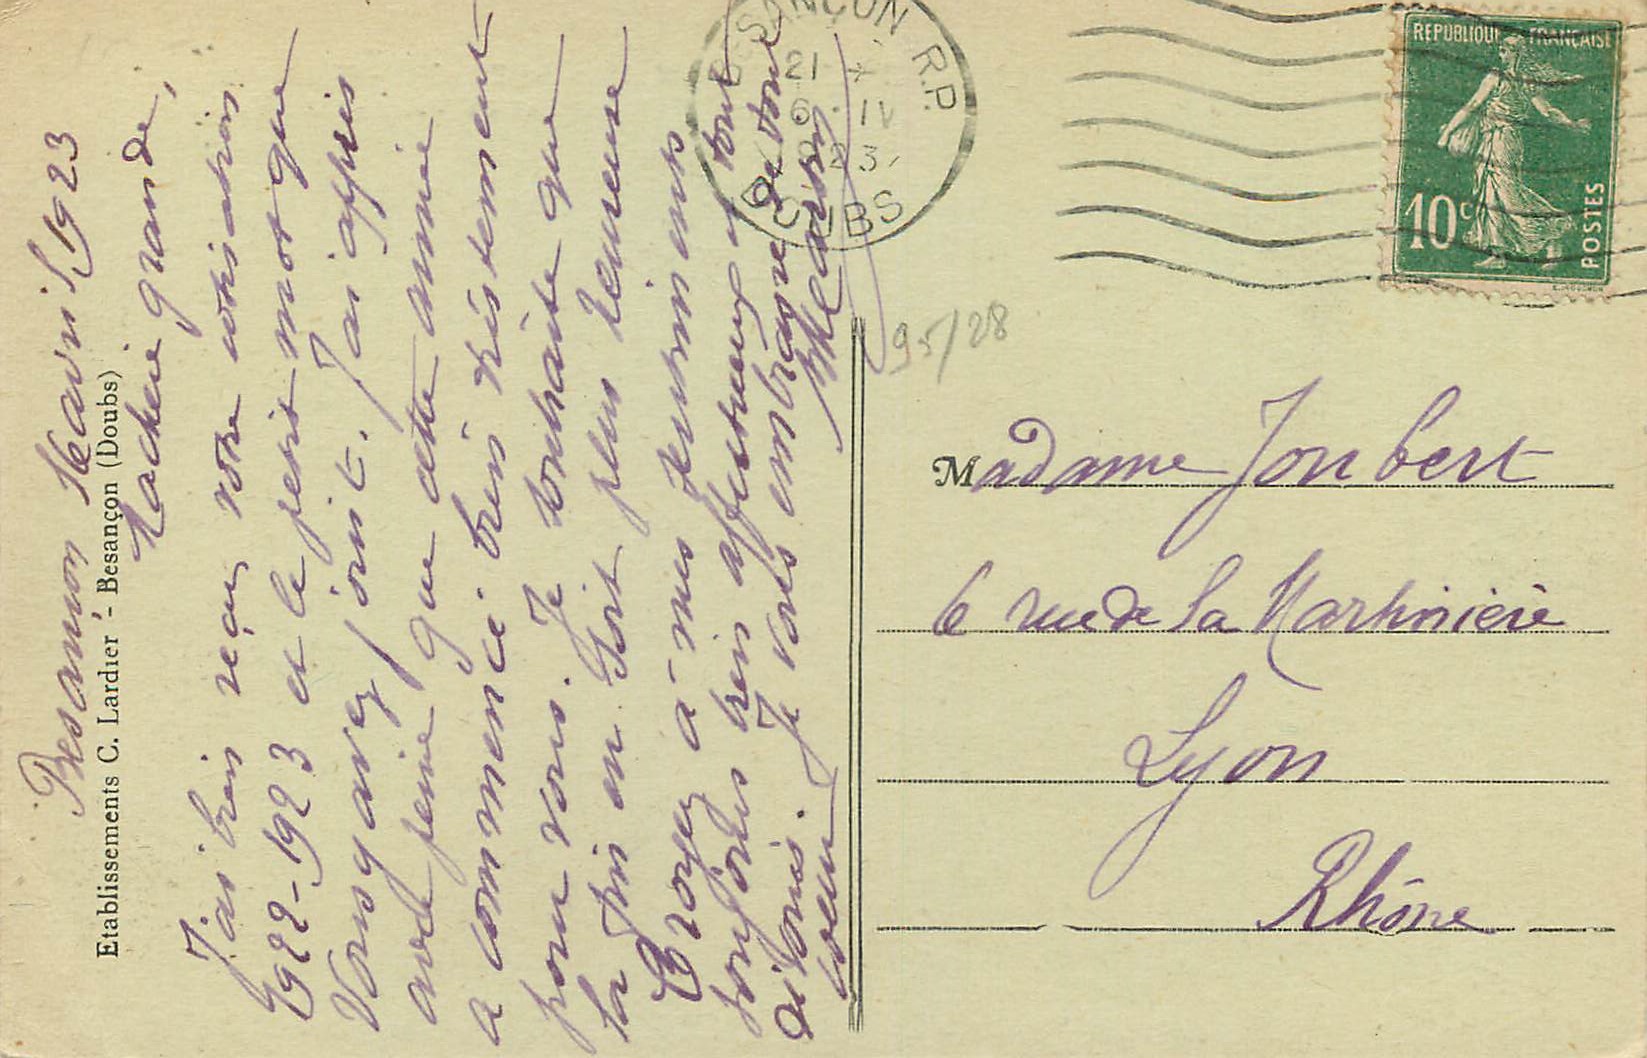 Besançon 16 avril 1923
Etablissements C. Lardier - Besançon (Doubs)
Ma chère grande,
J'ai bien reçu votre cotisation
1922-1923 et le petit mot que
vous y avez joint. J'ai appris
avec peine que cette année
a commencé bien tristement
pour vous. Je souhaite que
la fin en soit plus heureuse
Croyez à mes sentiments
toujours bien affectueux et tout
Je vous embrasse de tout
coeur
BESANÇON R.P.
21
6 IV
23
DOUBS
REPUBLIQUE FRANÇAISE
10c
POSTES
95/28
Madame Joubert
6 rue de la Martinière
Lyon
Rhône